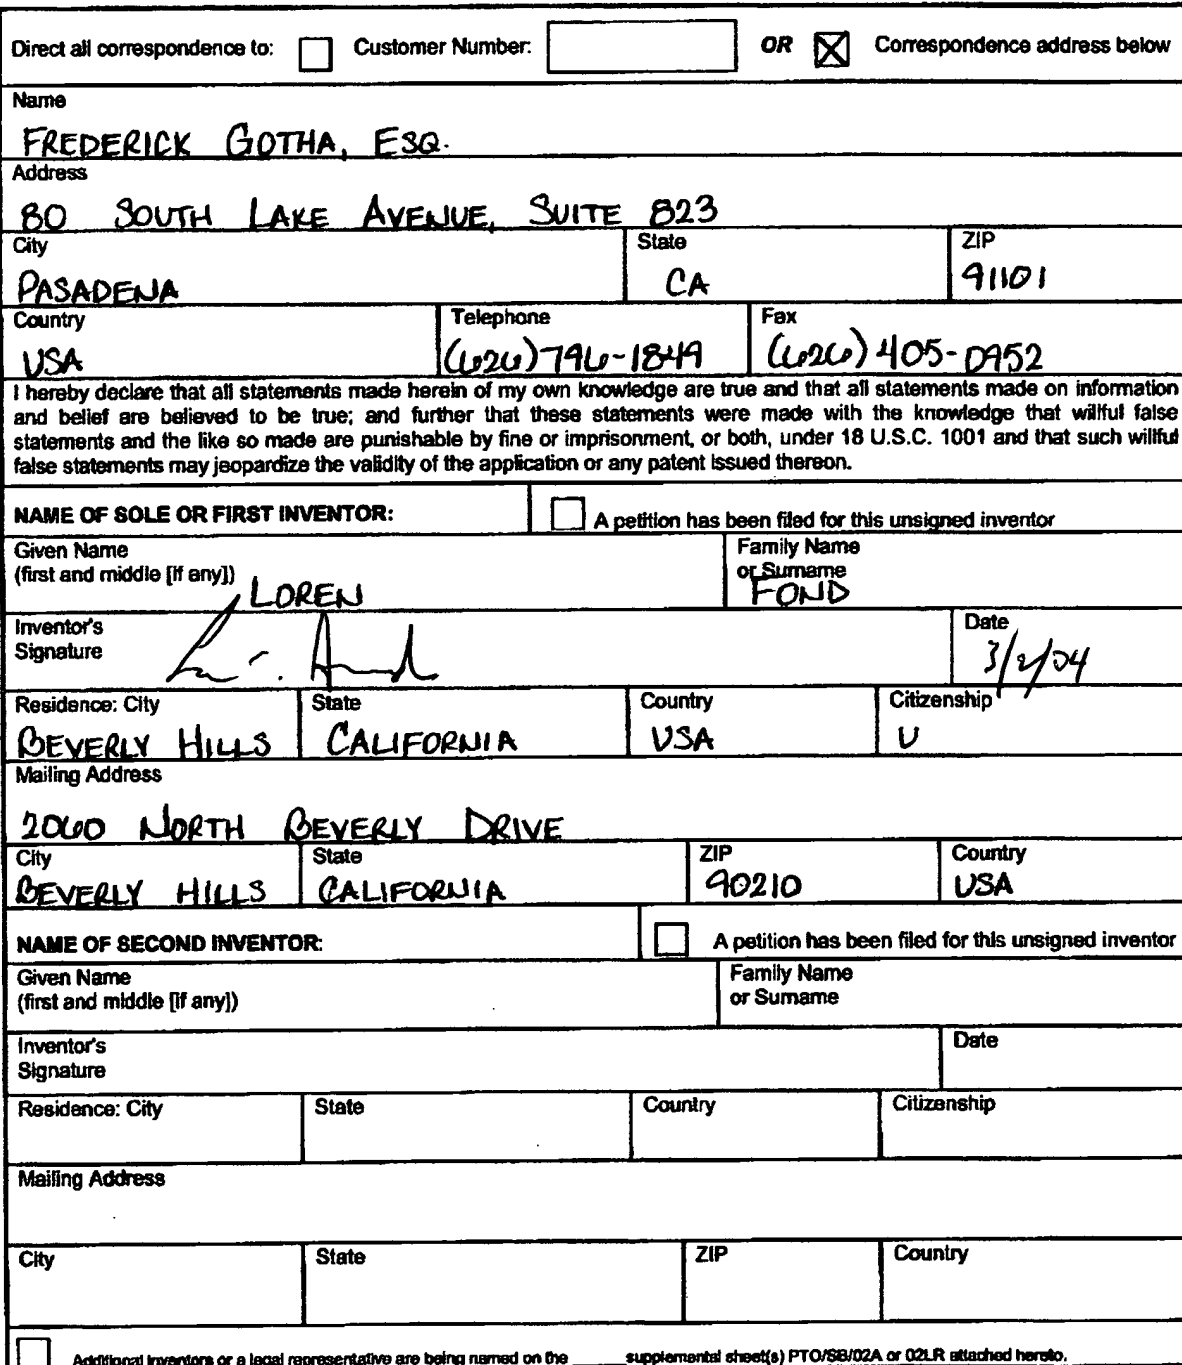 Direct all correspondence to: Customer Number: OR Correspondence address below
Name
FREDERICK GOTHA, ESQ.
Address
80 SOUTH LAKE AVENUE, SUITE 823
City State ZIP
PASADENA CA 91101
Country Telephone Fax
USA (626) 796-1849 (626) 405-0952
I hereby declare that all statements made herein of my own knowledge are true and that all statements made on information
and belief are believed to be true; and further that these statements were made with the knowledge that willful false
statements and the like so made are punishable by fine or imprisonment, or both, under 18 U.S.C. 1001 and that such willful
false statements may jeopardize the validity of the application or any patent issued thereon.
NAME OF SOLE OR FIRST INVENTOR: A petition has been filed for this unsigned inventor
Given Name Family Name
(first and middle [if any]) or Surname
LOREN FOND
Inventor's Date
Signature
Residence: City State Country Citizenship
BEVERLY HILLS CALIFORNIA USA U
Mailing Address
2060 NORTH BEVERLY DRIVE
City State ZIP Country
BEVERLY HILLS CALIFORNIA 90210 USA
NAME OF SECOND INVENTOR: A petition has been filed for this unsigned inventor
Given Name Family Name
(first and middle [if any]) or Surname
Inventor's Date
Signature
Residence: City State Country Citizenship
Mailing Address
City State ZIP Country
Additional inventors or a legal representative are being named on the ____ supplemental sheet(s) PTO/SB/02A or 02LR attached hereto.